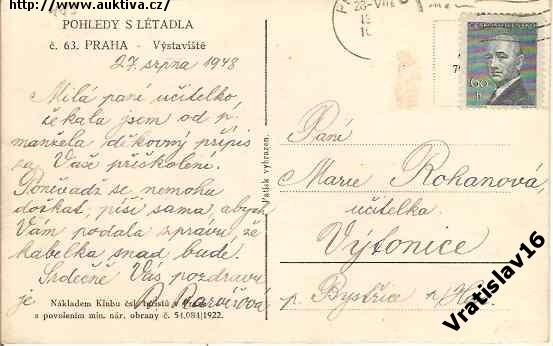 http://www.auktiva.cz/
POHLEDY S LÉTADLA
č. 63. PRAHA - Výstaviště
27. srpna 1948
Milá paní učitelko,
čekala jsem od p.
manžela děkovný přípis
za Vaše přiškolení.
Poněvadž se nemohu
dočkat, píši sama, abych
Vám podala zprávu, že
kabelka snad bude.
Srdečně Vás pozdravu
je
Nákladem Klubu čsl. turistů v Praze
s povolením min. nár. obrany č. 54.084/1922.
Otisk vyhrazen.
60
h
Paní
Marie Rohanová,
učitelka
Výtonice
p. Bystřice p/Host.
Vratislav16